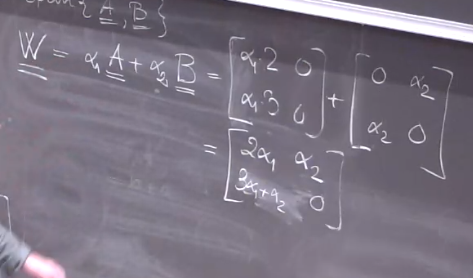 {A, B}
W = α₁A + α₂B = [α₁·2 0; α₁·3 0] + [0 α₂; α₂ 0]
= [2α₁ α₂; 3α₁+α₂ 0]